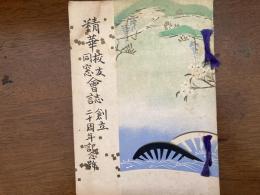 精華校友會誌
同窓
創立
二十周年記念號